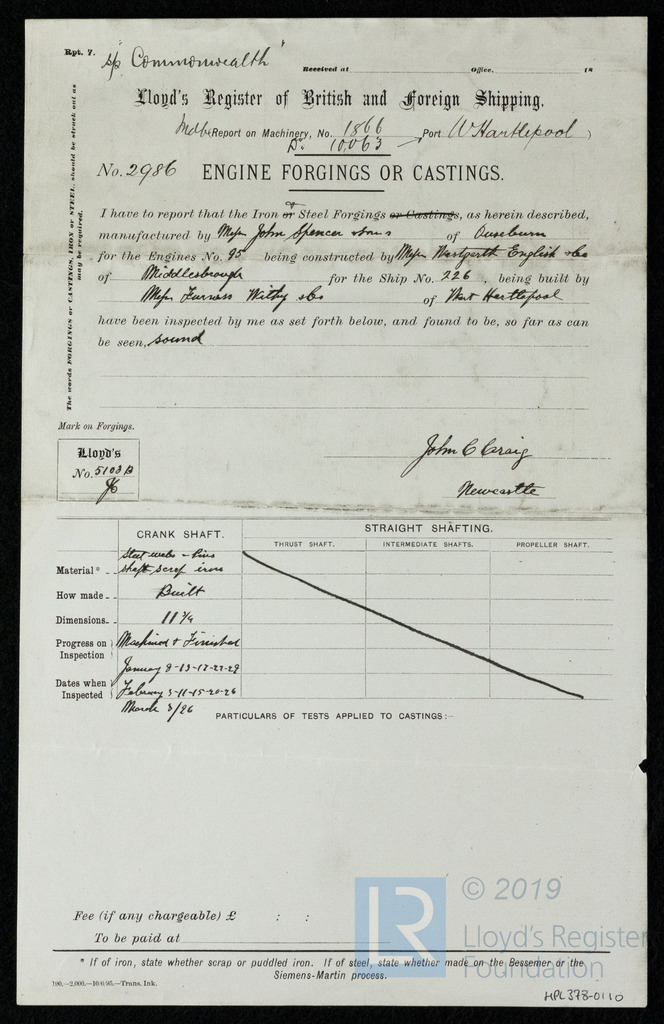 Rpt. 7.
s/s "Commonwealth"
Received at Office, 18
Lloyd's Register of British and Foreign Shipping.
Mdbr Report on Machinery, No. 1866 Port W Hartlepool
Do. 10063
No. 2986 ENGINE FORGINGS OR CASTINGS.
The words FORGINGS or CASTINGS, IRON or STEEL, should be struck out as may be required.
I have to report that the Iron or Steel Forgings or Castings, as herein described,
manufactured by Messrs John Spencer & Sons of Ouseburn
for the Engines No. 95 being constructed by Messrs Westgarth English & Co
of Middlesbrough for the Ship No. 226, being built by
Messrs Furness Withy & Co of West Hartlepool
have been inspected by me as set forth below, and found to be, so far as can
be seen, sound
Mark on Forgings.
Lloyd's
No. 5103 B
John C Craig
Newcastle
CRANK SHAFT.
STRAIGHT SHAFTING.
THRUST SHAFT. INTERMEDIATE SHAFTS. PROPELLER SHAFT.
Material* Steel webs & Pins
shaft, scrap iron
How made Built
Dimensions 11 3/4
Progress on Inspection Machined & Finished
Dates when Inspected January 8-13-17-22-29
February 3-11-15-20-26
March 3/96
PARTICULARS OF TESTS APPLIED TO CASTINGS:—
Fee (if any chargeable) £ : :
To be paid at
* If of iron, state whether scrap or puddled iron. If of steel, state whether made on the Bessemer or the
Siemens-Martin process.
100.—2,000.—10/6/95.—Trans. Ink.
LR
© 2019
Lloyd's Register
Foundation
HPL378-0110